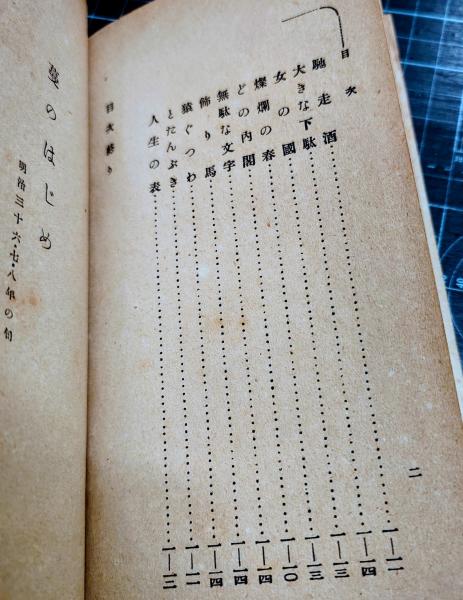 目次
馳走酒…………一—二
大きな下駄…………一—四
女の國…………一—三
燦爛の春…………一—三
どの内閣…………一—〇
無駄な文字…………一—四
飾り馬…………一—四
猿ぐつわ…………一—四
とたんぶき…………一—二
人生の表…………一—三
目次終り
二
のはじめ
明治三十六・七・八年の句